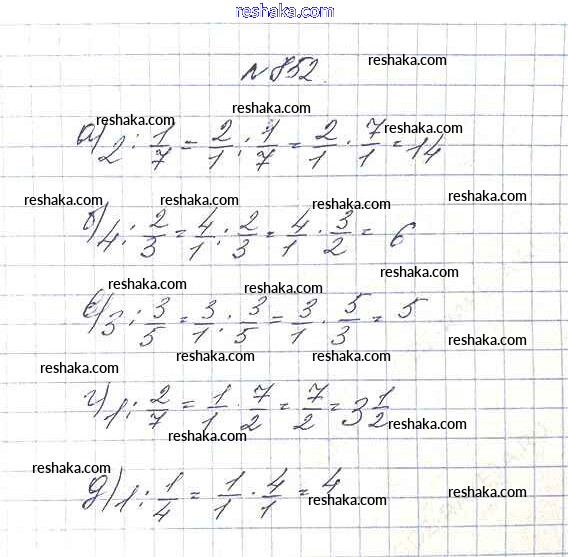 reshaka.com
№ 852.
reshaka.com
reshaka.com
reshaka.com reshaka.com
а) 2 : 1/7 = 2/1 : 1/7 = 2/1 · 7/1 = 14
reshaka.com reshaka.com reshaka.com reshaka.com
б) 4 : 2/3 = 4/1 : 2/3 = 4/1 · 3/2 = 6
reshaka.com reshaka.com reshaka.com
в) 3 : 3/5 = 3/1 : 3/5 = 3/1 · 5/3 = 5
reshaka.com
reshaka.com reshaka.com
reshaka.com
г) 1 : 2/7 = 1/1 · 7/2 = 7/2 = 3 1/2
reshaka.com reshaka.com
reshaka.com
д) 1 : 1/4 = 1/1 · 4/1 = 4
reshaka.com reshaka.com